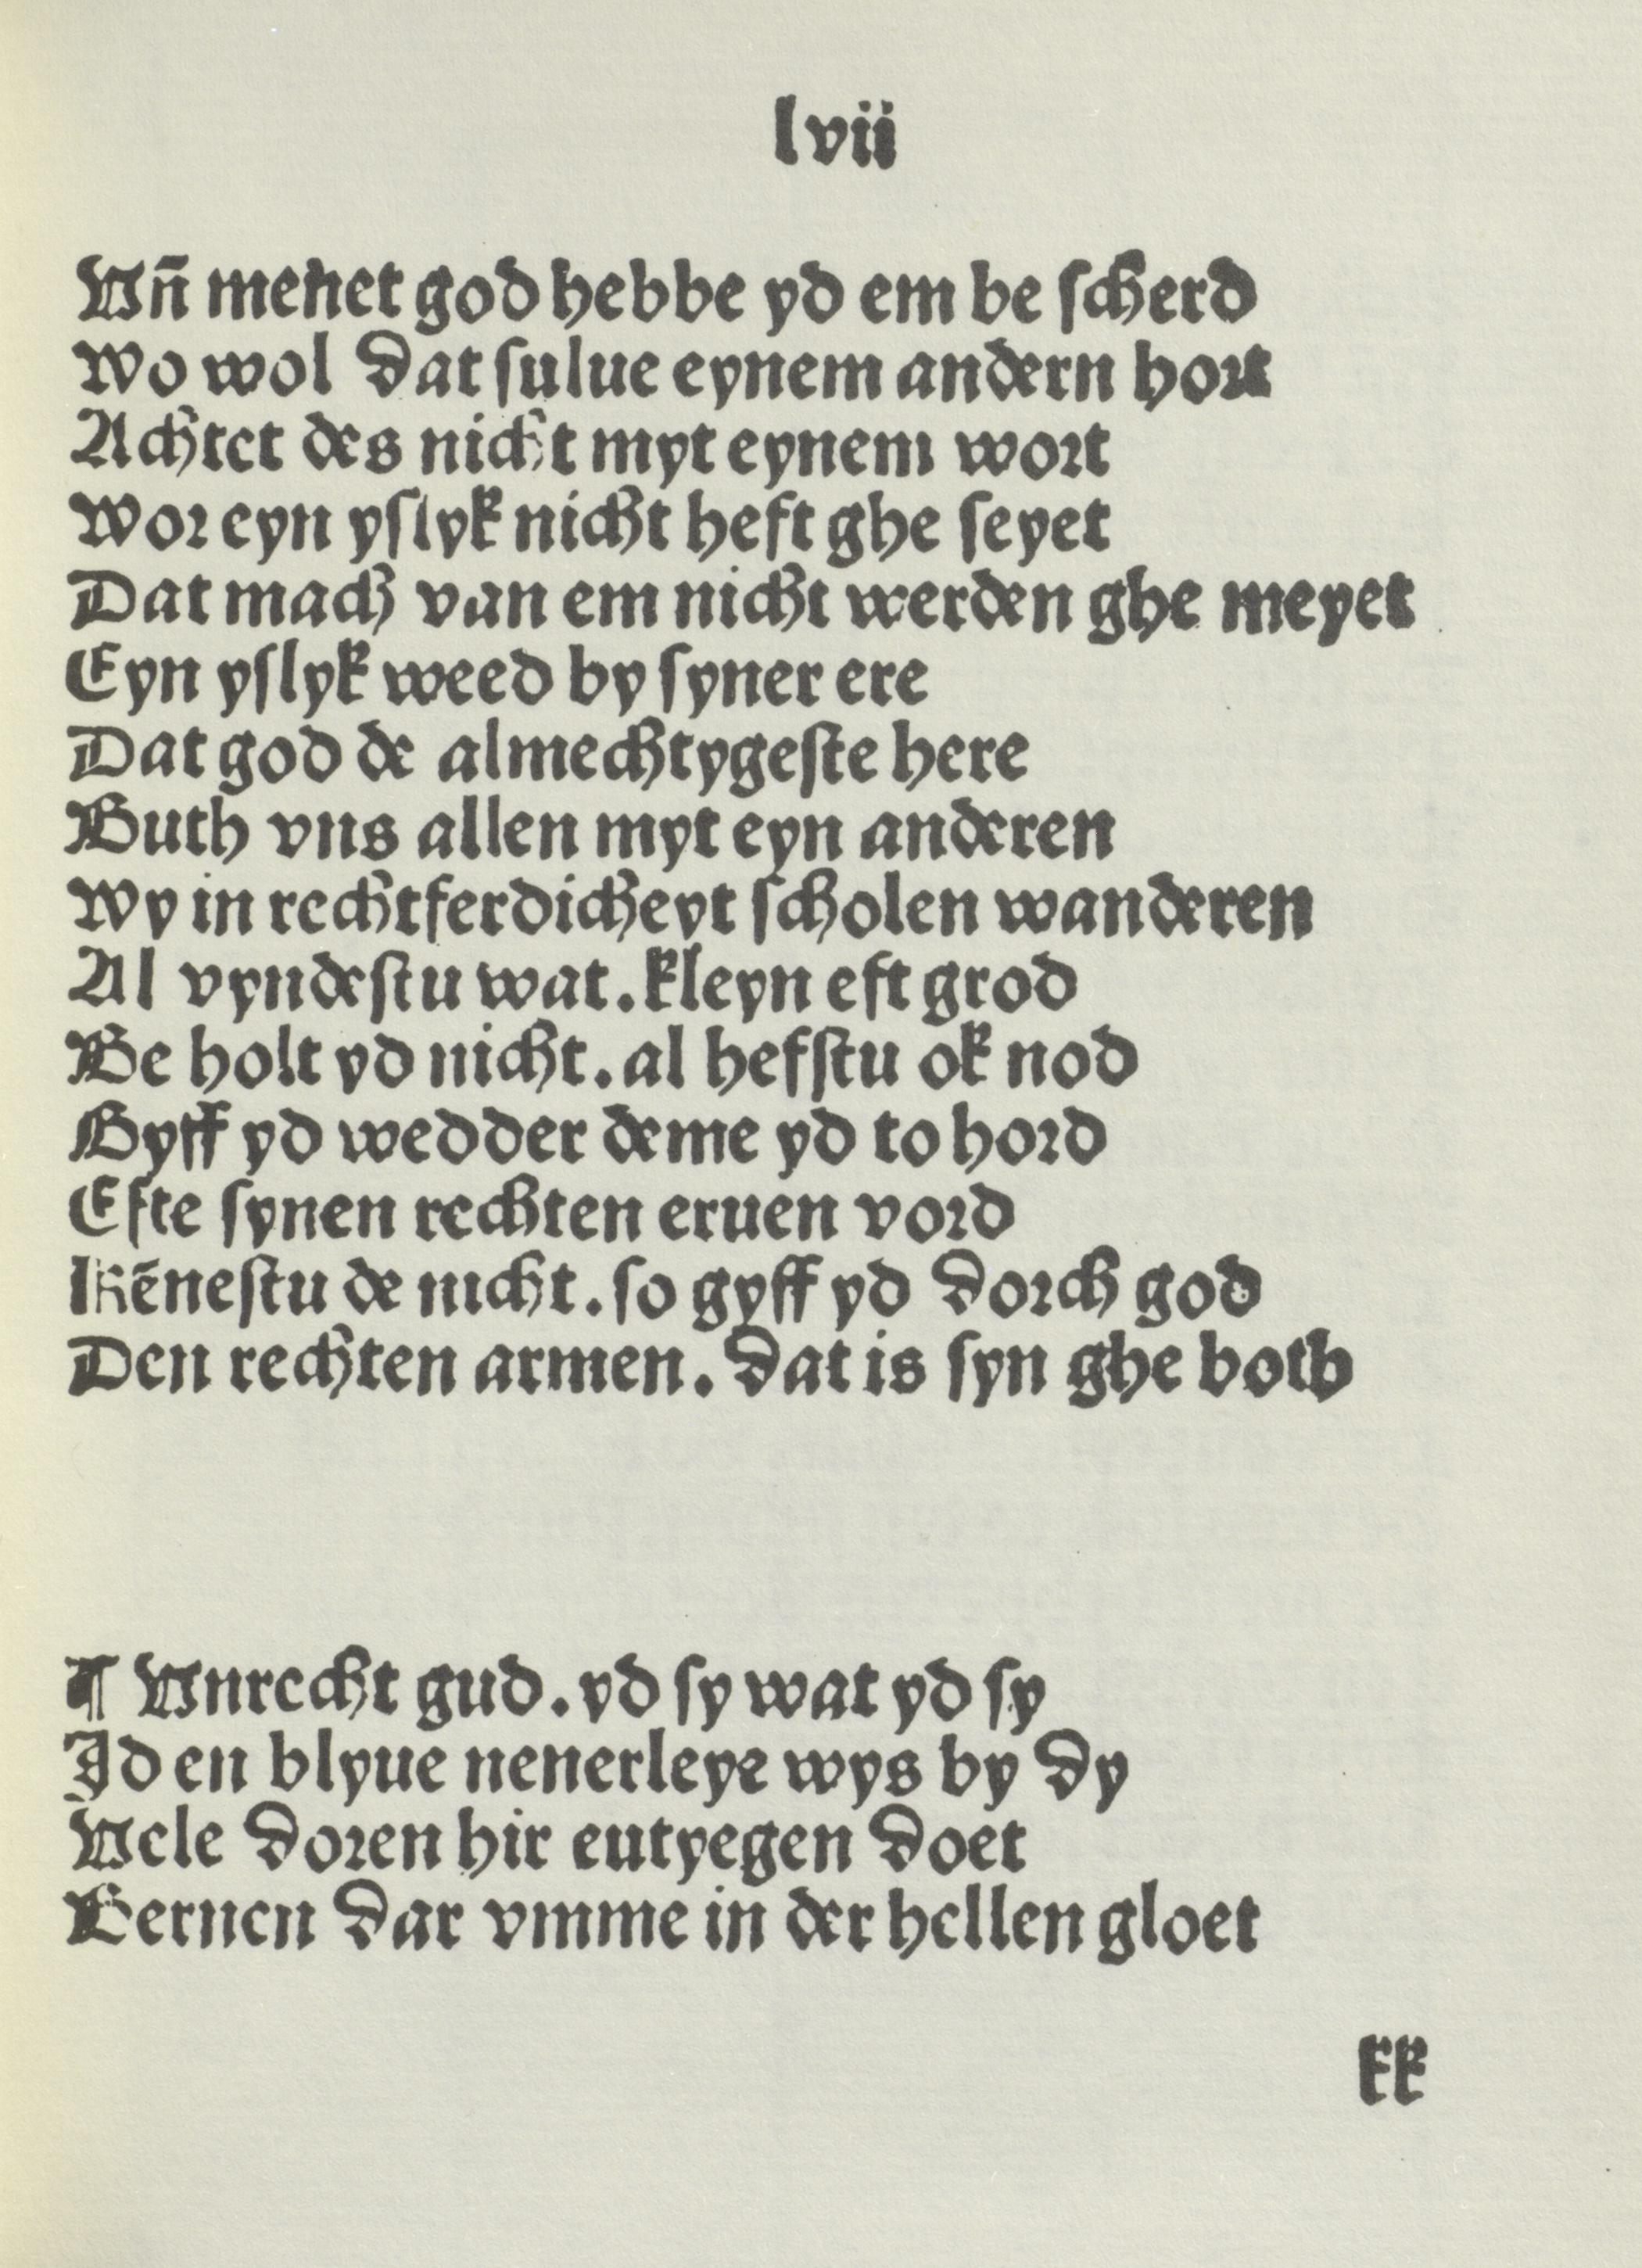 lvii
Vn̄ menet god hebbe yd em be ſcherd
Wo wol dat ſulue eynem andern hort
Achtet des nicht myt eynem wort
Wor eyn yſlyk nicht heft ghe ſeyet
Dat mach van em nicht werden ghe meyet
Eyn yſlyk weed by ſyner ere
Dat god de almechtygeſte here
Buth vns allen myt eyn anderen
Wy in rechtferdicheyt ſcholen wanderen
Al vyndeſtu wat. kleyn eft grod
Be holt yd nicht. al hefſtu ok nod
Gyff yd wedder deme yd to hord
Efte ſynen rechten eruen vord
Kēneſtu de nicht. ſo gyff yd dorch god
Den rechten armen. dat is ſyn ghe both
¶ Vnrecht gud. yd ſy wat yd ſy
Id en blyue nenerleye wys by dy
Vele doren hir eutyegen doet
Bernen dar vmme in der hellen gloet
kk